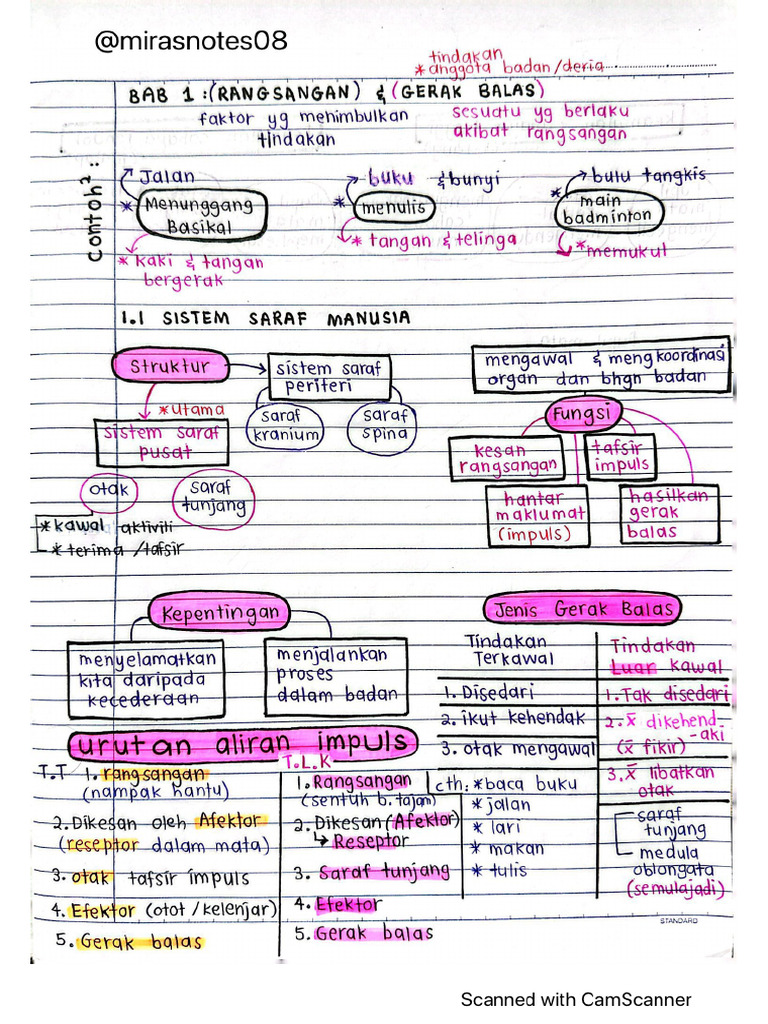 @mirasnotes08
tindakan
* anggota badan/deria
BAB 1 : (RANGSANGAN) & (GERAK BALAS)
faktor yg menimbulkan
tindakan
sesuatu yg berlaku
akibat rangsangan
Contoh²:
Jalan
* Menunggang
Basikal
* kaki & tangan
bergerak
buku & bunyi
* menulis
* tangan & telinga
bulu tangkis
* main
badminton
* memukul
1.1 SISTEM SARAF MANUSIA
Struktur
sistem saraf
periferi
saraf
kranium
saraf
spina
*utama
sistem saraf
pusat
otak
saraf
tunjang
* kawal aktiviti
* terima /tafsir
mengawal & mengkoordinasi
organ dan bhgn badan
Fungsi
kesan
rangsangan
tafsir
impuls
hantar
maklumat
(impuls)
hasilkan
gerak
balas
Kepentingan
menyelamatkan
kita daripada
kecederaan
menjalankan
proses
dalam badan
Jenis Gerak Balas
Tindakan
Terkawal
1. Disedari
2. ikut kehendak
3. otak mengawal
cth: *baca buku
* jalan
* lari
* makan
* tulis
Tindakan
Luar kawal
1. Tak disedari
2. x̄ dikehend
-aki
(x̄ fikir)
3. x̄ libatkan
otak
saraf
tunjang
medula
oblongata
(semulajadi)
urutan aliran impuls
T.T
1. rangsangan
(nampak hantu)
2. Dikesan oleh Afektor
(reseptor dalam mata)
3. otak tafsir impuls
4. Efektor (otot /kelenjar)
5. Gerak balas
T.L.K
1. Rangsangan
(sentuh b. tajam)
2. Dikesan (Afektor)
↳ Reseptor
3. Saraf tunjang
4. Efektor
5. Gerak balas
STANDARD
Scanned with CamScanner